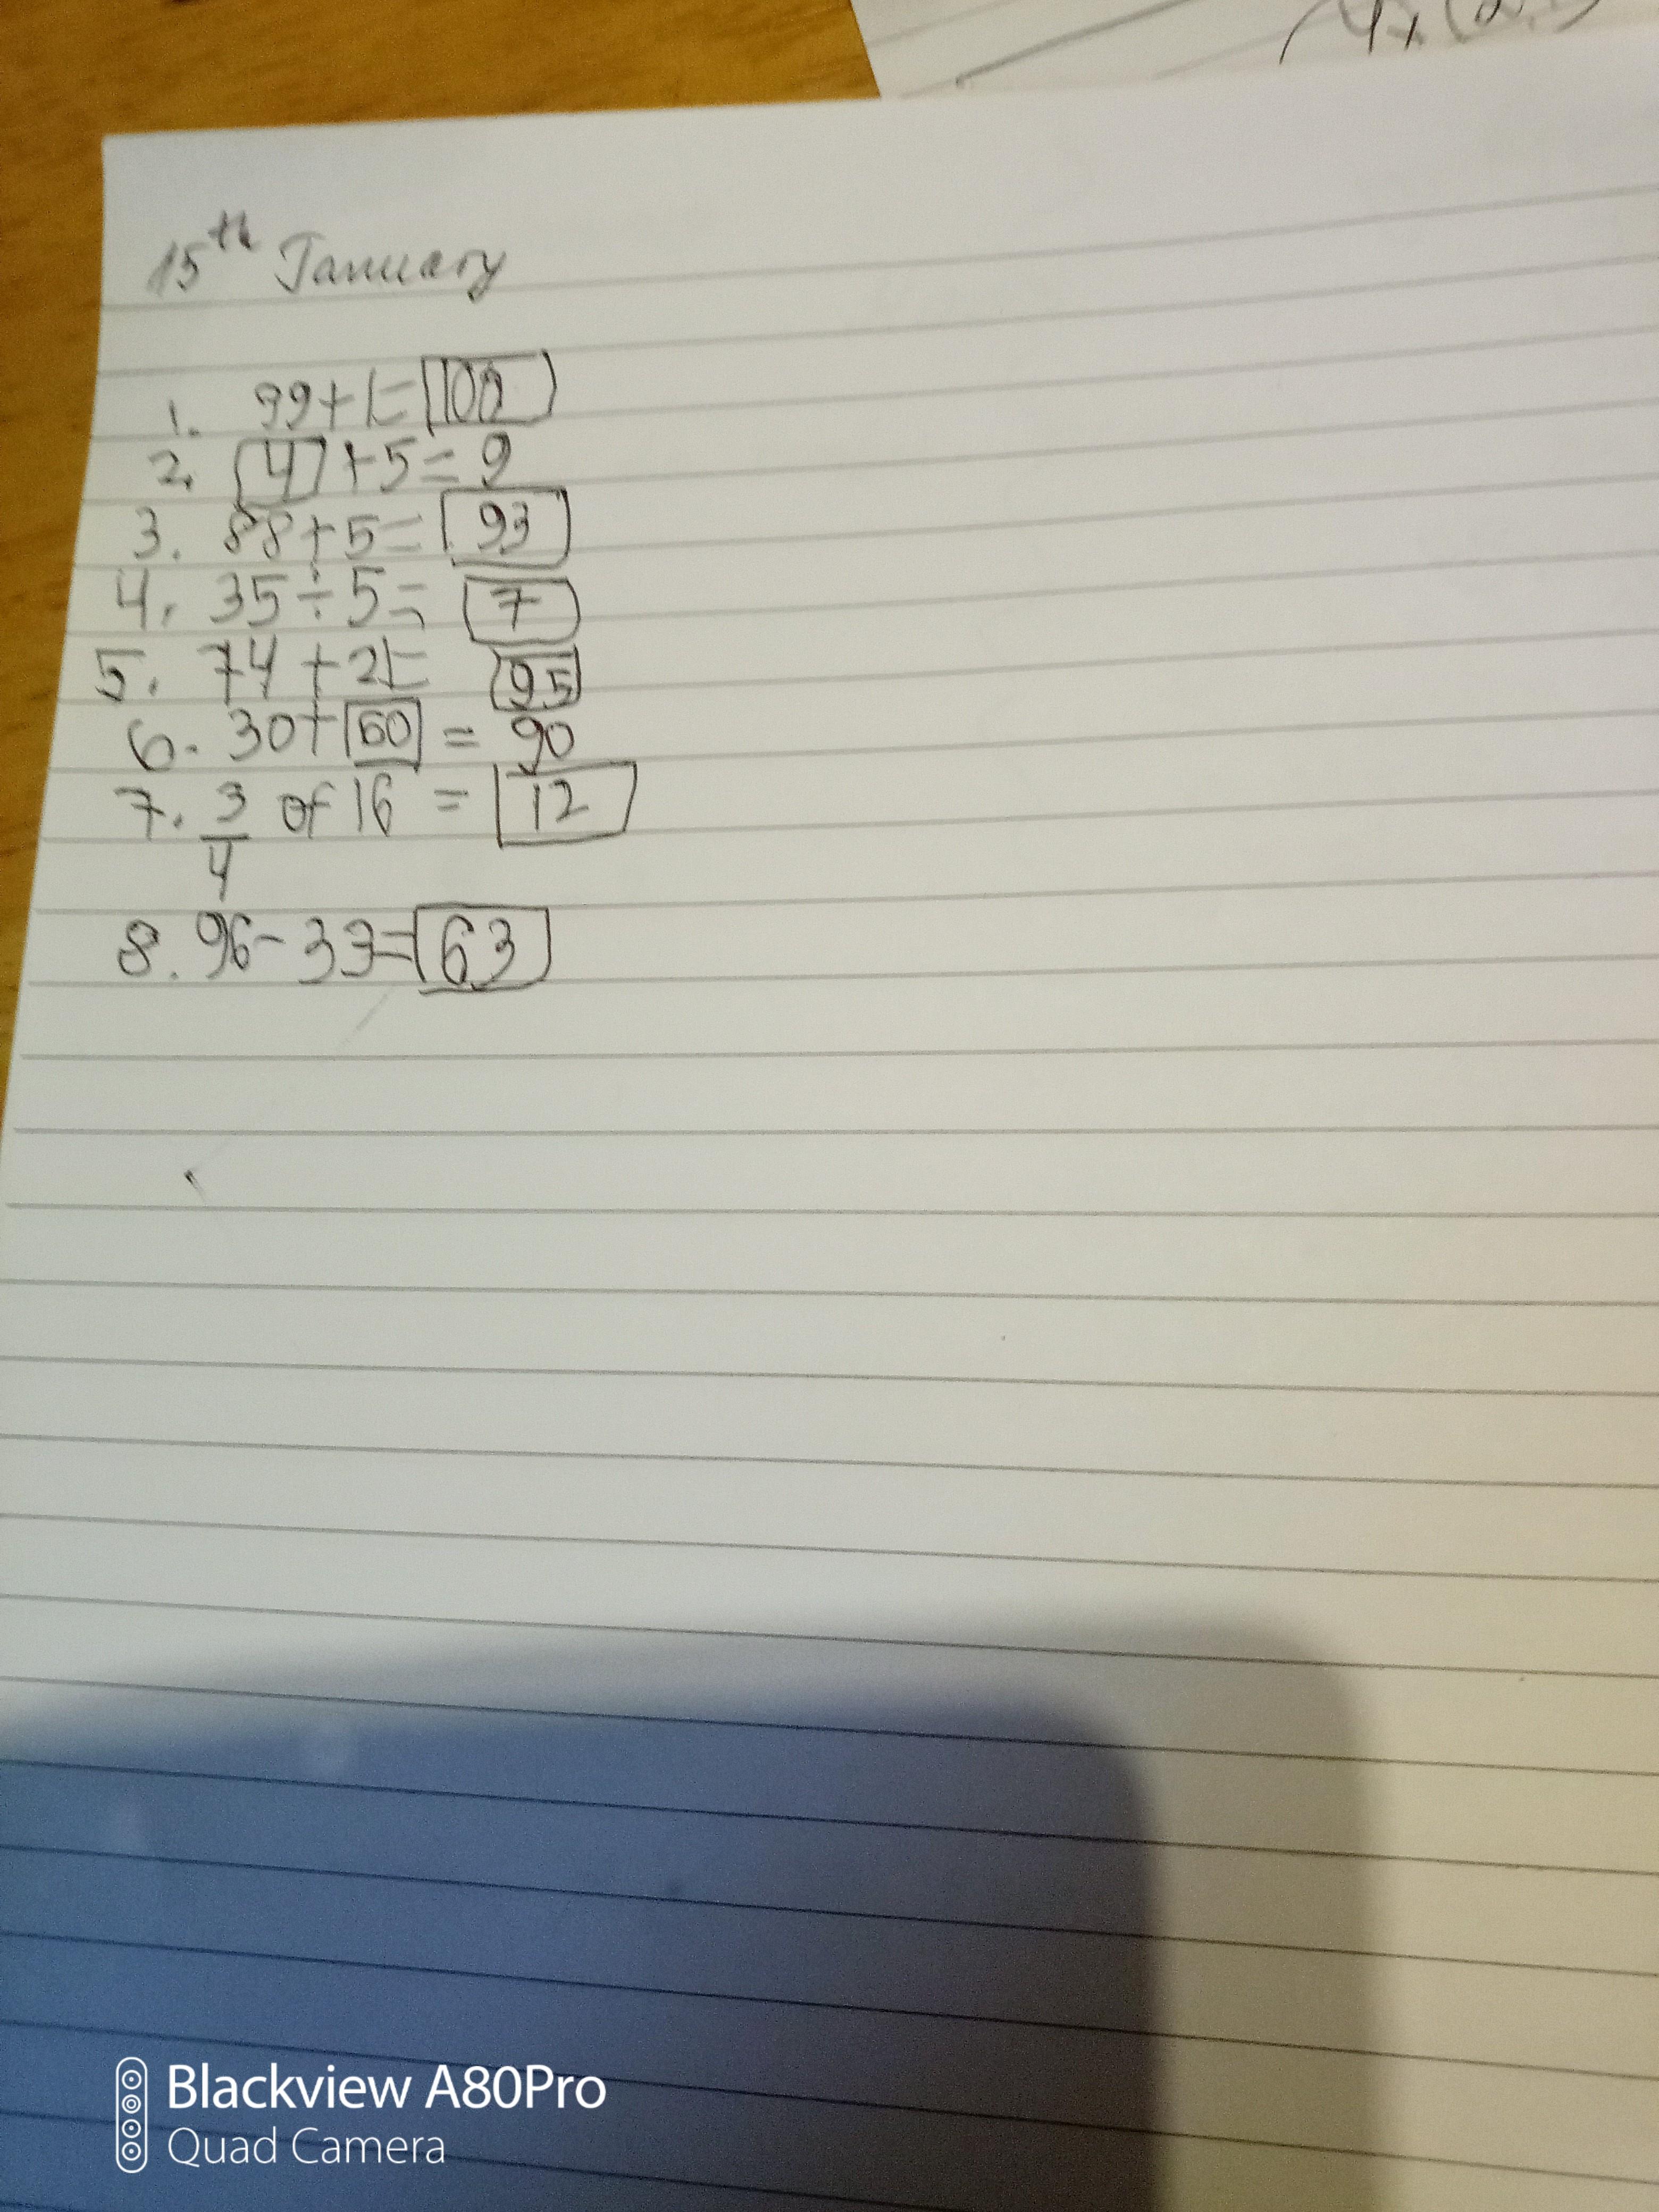 15th January
1. 99+1=100
2. 4+5=9
3. 88+5=93
4. 35÷5=7
5. 74+21=95
6. 30+60=90
7. 3/4 of 16 = 12
8. 96-33=63
Blackview A80Pro
Quad Camera